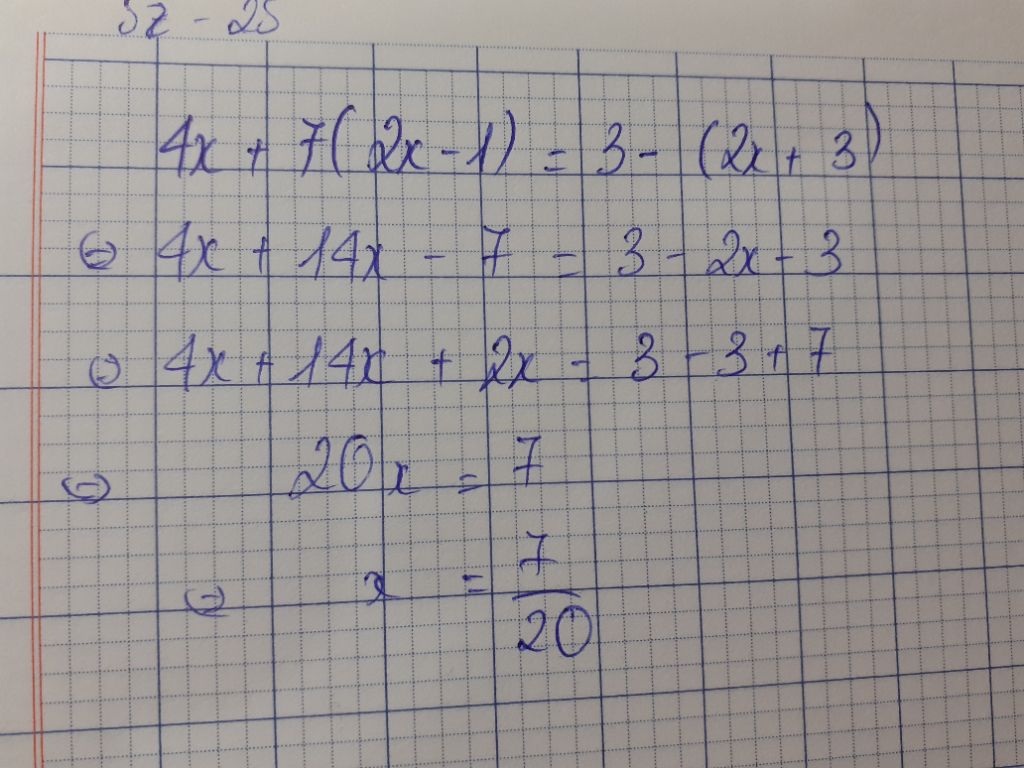 5z - 25
4x + 7(2x - 1) = 3 - (2x + 3)
⇔ 4x + 14x - 7 = 3 - 2x - 3
⇔ 4x + 14x + 2x = 3 - 3 + 7
⇔ 20x = 7
⇔ x = 7/20